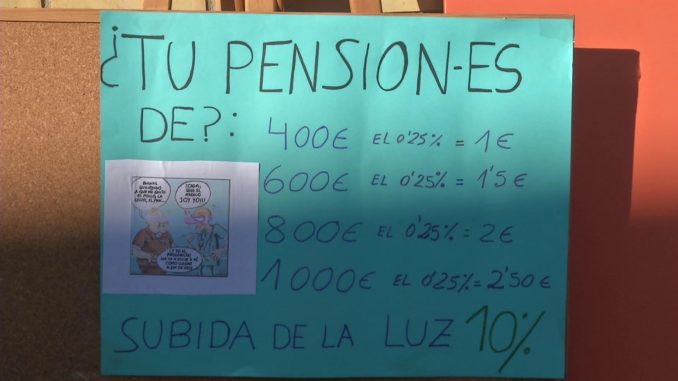 ¿TU PENSION-ES
DE?:
400€ EL 0'25% = 1€
600€ EL 0'25% = 1'5€
800€ EL 0'25% = 2€
1000€ EL 0'25% = 2'50€
¡CALLA, QUE EL MÉDICO SOY YO!!!
SUBIDA DE LA LUZ 10%